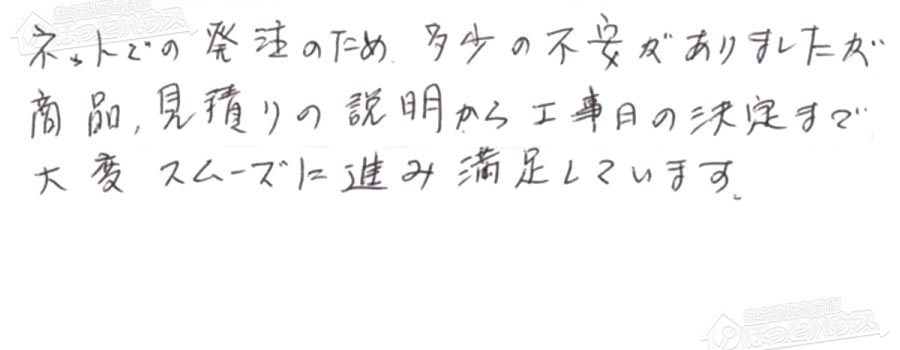 ネットでの発注のため、多少の不安がありましたが
商品、見積りの説明から工事日の決定まで
大変スムーズに進み満足しています。
ほっとハウス
ほっとハウス